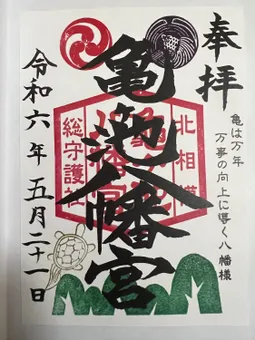 奉拝
亀は万年
万事の向上に導く八幡様
北相模
亀ヶ池八幡宮
総守護社
令和六年五月二十一日